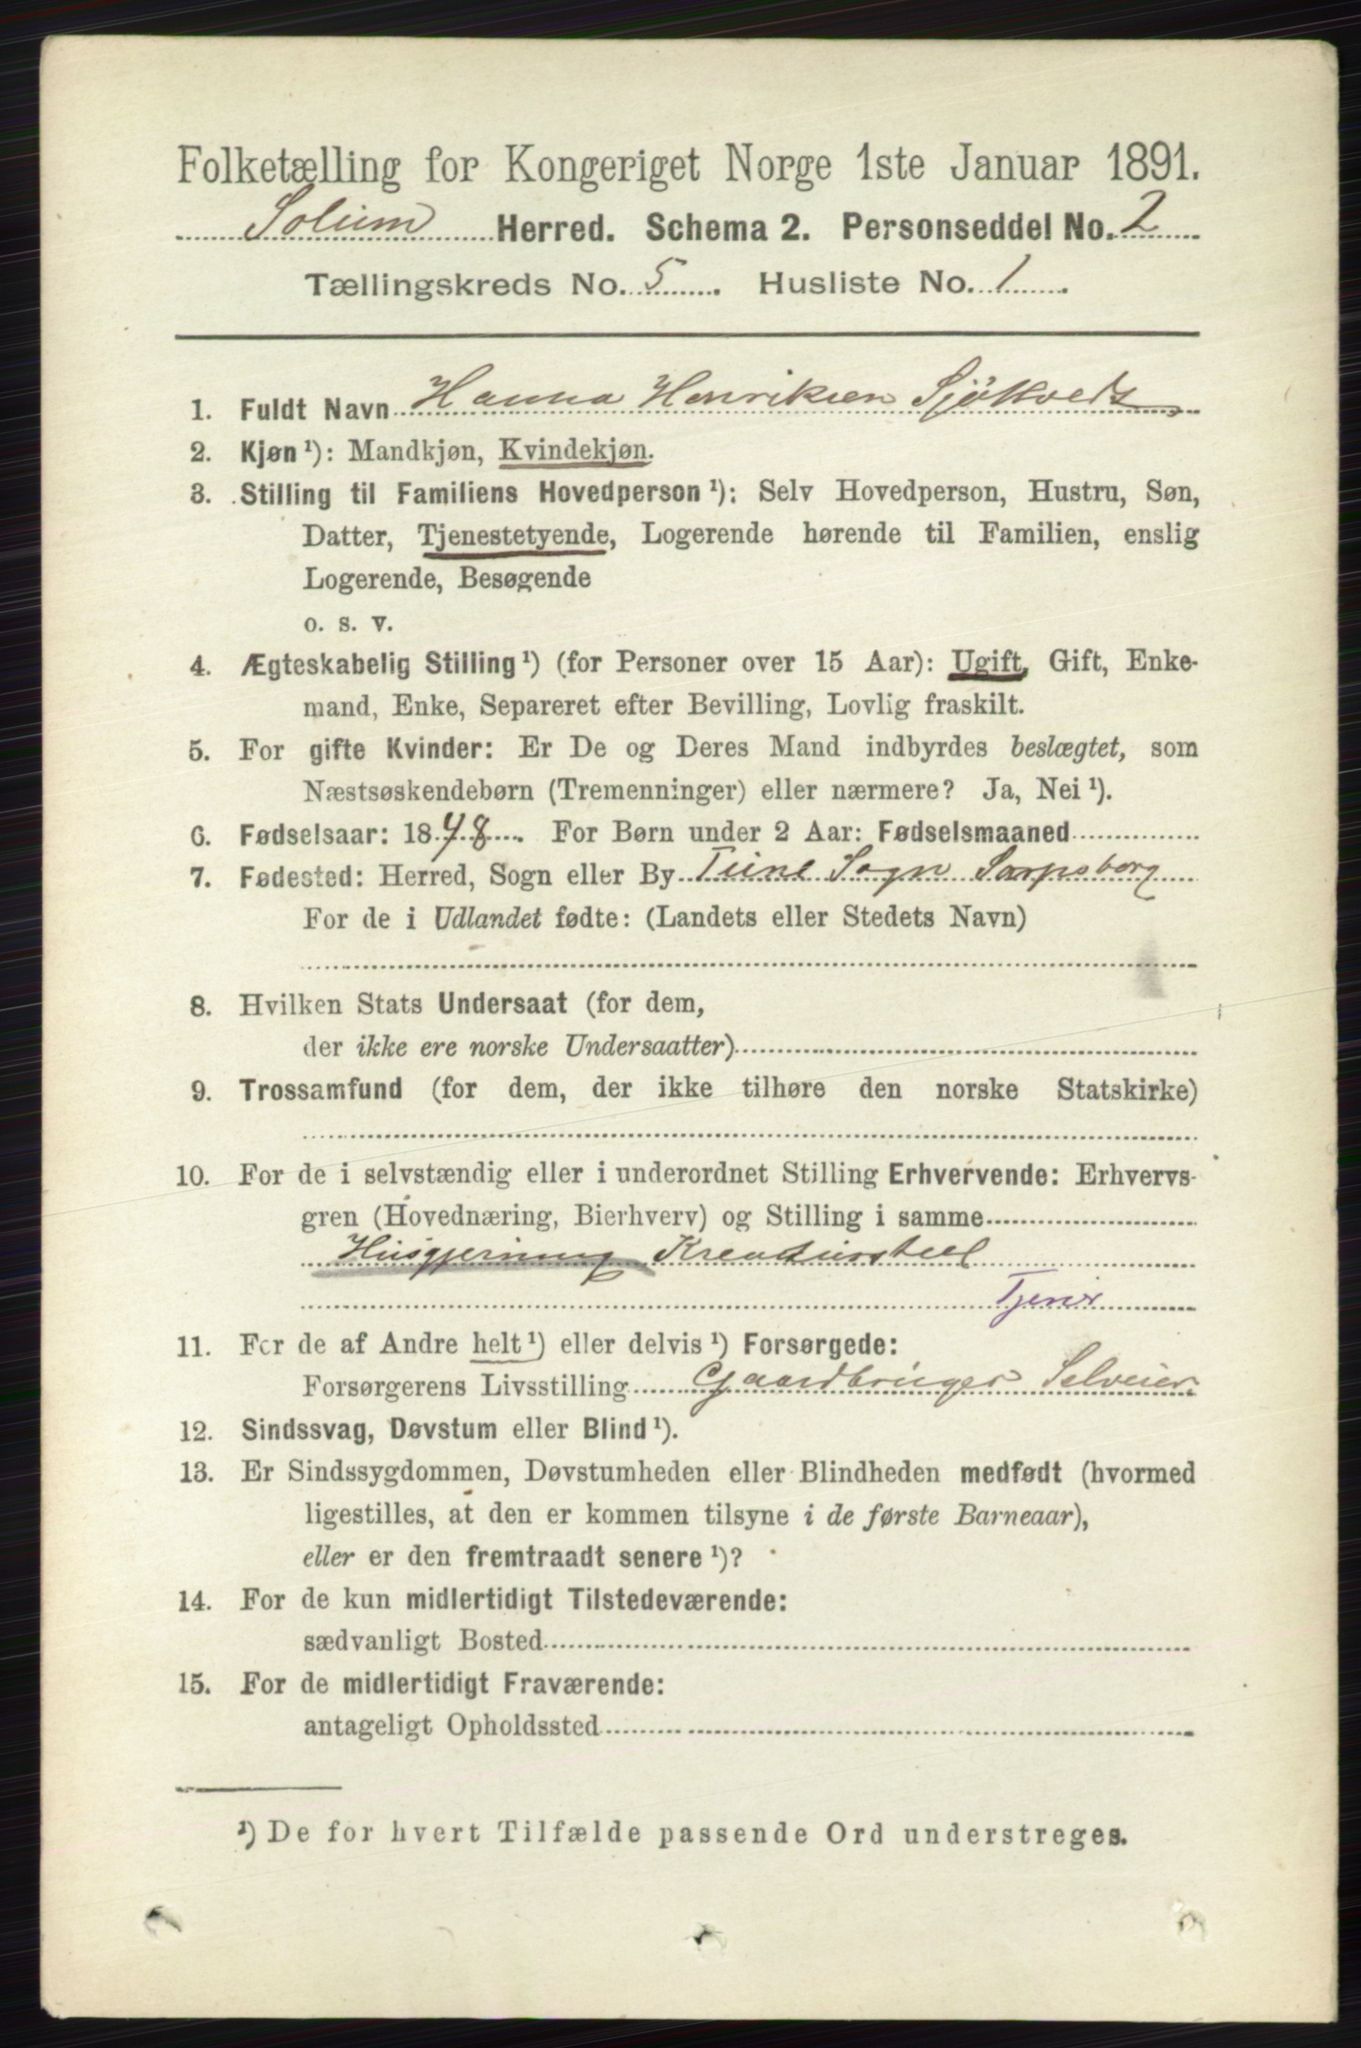 Folketælling for Kongeriget Norge 1ste Januar 1891.
Solum Herred. Schema 2. Personseddel No. 2
Tællingskreds No. 5. Husliste No. 1.
1. Fuldt Navn Hanna Henriksen
2. Kjøn ¹): Mandkjøn, Kvindekjøn.
3. Stilling til Familiens Hovedperson ¹): Selv Hovedperson, Hustru, Søn,
Datter, Tjenestetyende, Logerende hørende til Familien, enslig
Logerende, Besøgende
o. s. v.
4. Ægteskabelig Stilling ¹) (for Personer over 15 Aar): Ugift, Gift, Enke-
mand, Enke, Separeret efter Bevilling, Lovlig fraskilt.
5. For gifte Kvinder: Er De og Deres Mand indbyrdes beslægtet, som
Næstsøskendebørn (Tremenninger) eller nærmere? Ja, Nei ¹).
6. Fødselsaar: 1848. For Børn under 2 Aar: Fødselsmaaned
7. Fødested: Herred, Sogn eller By Tune Sogn Sarpsborg
For de i Udlandet fødte: (Landets eller Stedets Navn)
8. Hvilken Stats Undersaat (for dem,
der ikke ere norske Undersaatter)
9. Trossamfund (for dem, der ikke tilhøre den norske Statskirke)
10. For de i selvstændig eller i underordnet Stilling Erhvervende: Erhvervs-
gren (Hovednæring, Bierhverv) og Stilling i samme
Husgjerning Kreaturstel
Tjener
11. For de af Andre helt ¹) eller delvis ¹) Forsørgede:
Forsørgerens Livsstilling Gaardbruger Selveier
12. Sindssvag, Døvstum eller Blind ¹).
13. Er Sindssygdommen, Døvstumheden eller Blindheden medfødt (hvormed
ligestilles, at den er kommen tilsyne i de første Barneaar),
eller er den fremtraadt senere ¹)?
14. For de kun midlertidigt Tilstedeværende:
sædvanligt Bosted
15. For de midlertidigt Fraværende:
antageligt Opholdssted
¹) De for hvert Tilfælde passende Ord understreges.